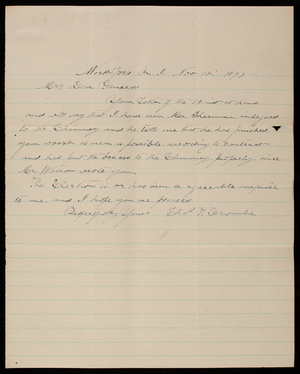 Nov 12 1892
My Dear General
Your letter of the 10 inst at hand
and will say that I have seen Mr Sherman in regard
to the Chimney and he tells me that he has finished
your work as near as possible according to contract
and has put the braces to the Chimney properly, since
Mr. Wilson wrote you.
The Election is or has been a agreeable surprise
to me, and I hope you are pleased.
Respectfully Yours Thos